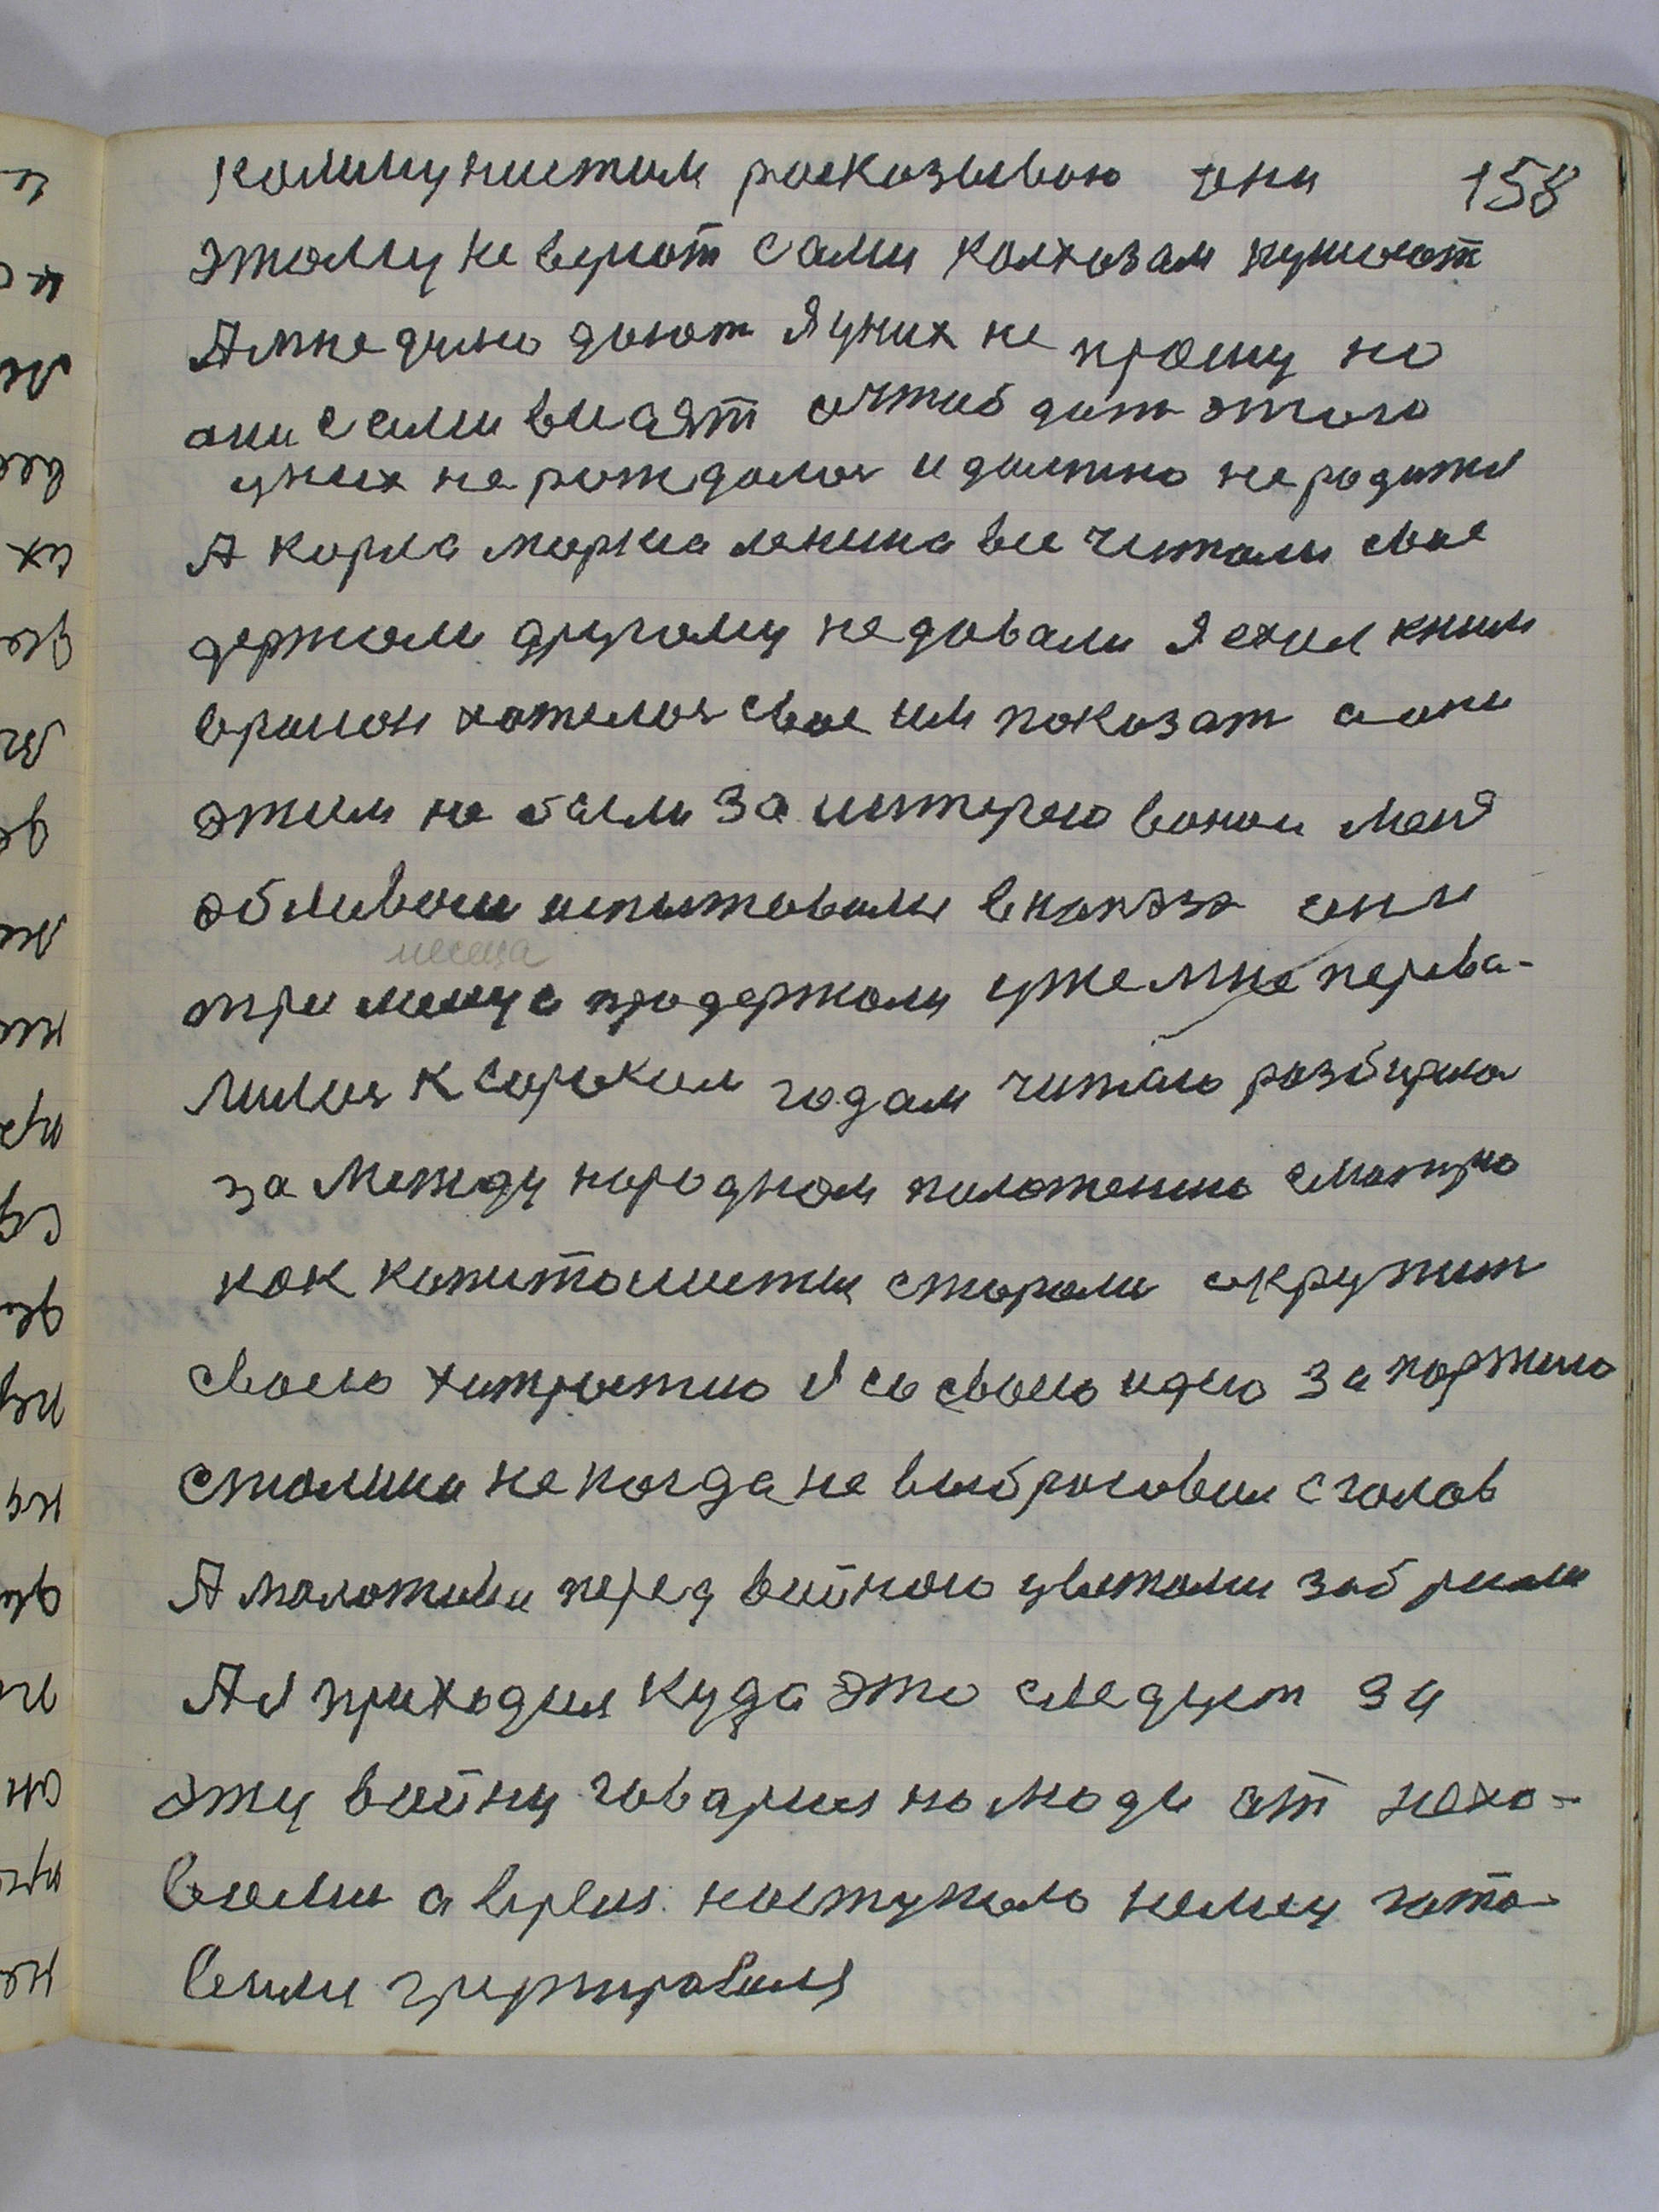 коммунистам расказываю они 158
этому не верют сами колхозам кушают
А мне дино дают Я у них не прошу но
они сами висят очтоб дать этого
у них не рождалоя и должно не родится
А Карла маркса ленина все читали свое
держали другому не довали Я ехал к ним
врайон хотелоя свое им показат а они
этим не были за интересованы Меня
обливали испытовали в ногах они
месеца
три продержали уже мне перева-
лилоя к сорокам годам читаю разбираю
за Между народном положению сматрю
как капиталисты старали окружит
своею хитростию Я со своею идею за партию
сталина не когда не выбрасовал с голов
А молотова перед войною цветами забрили
А Я приходил куда это следует за
эту войну говарил но люди от нехо-
вали а время наступало немцы гото-
вили групировал